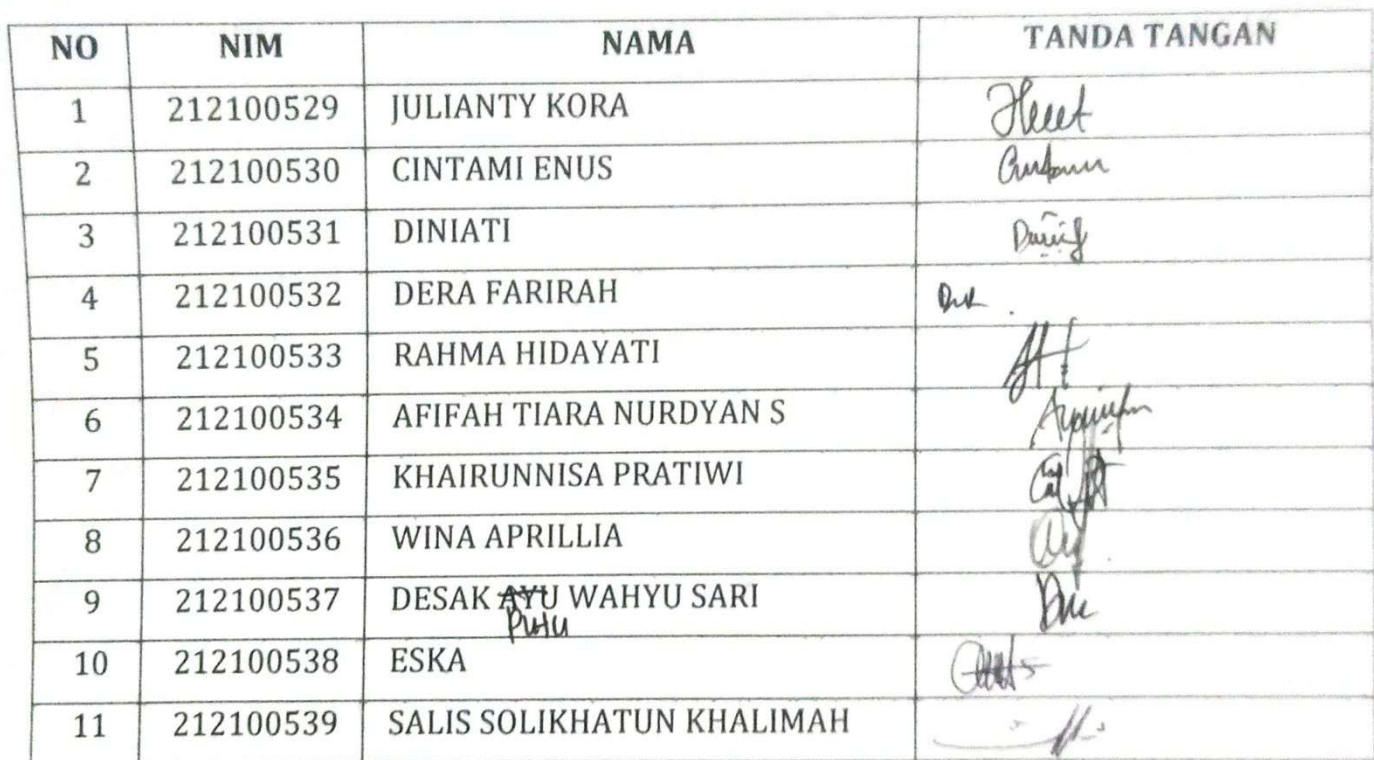 NO NIM NAMA TANDA TANGAN
1 212100529 JULIANTY KORA
2 212100530 CINTAMI ENUS
3 212100531 DINIATI
4 212100532 DERA FARIRAH
5 212100533 RAHMA HIDAYATI
6 212100534 AFIFAH TIARA NURDYAN S
7 212100535 KHAIRUNNISA PRATIWI
8 212100536 WINA APRILLIA
9 212100537 DESAK AYU WAHYU SARI
Putu
10 212100538 ESKA
11 212100539 SALIS SOLIKHATUN KHALIMAH